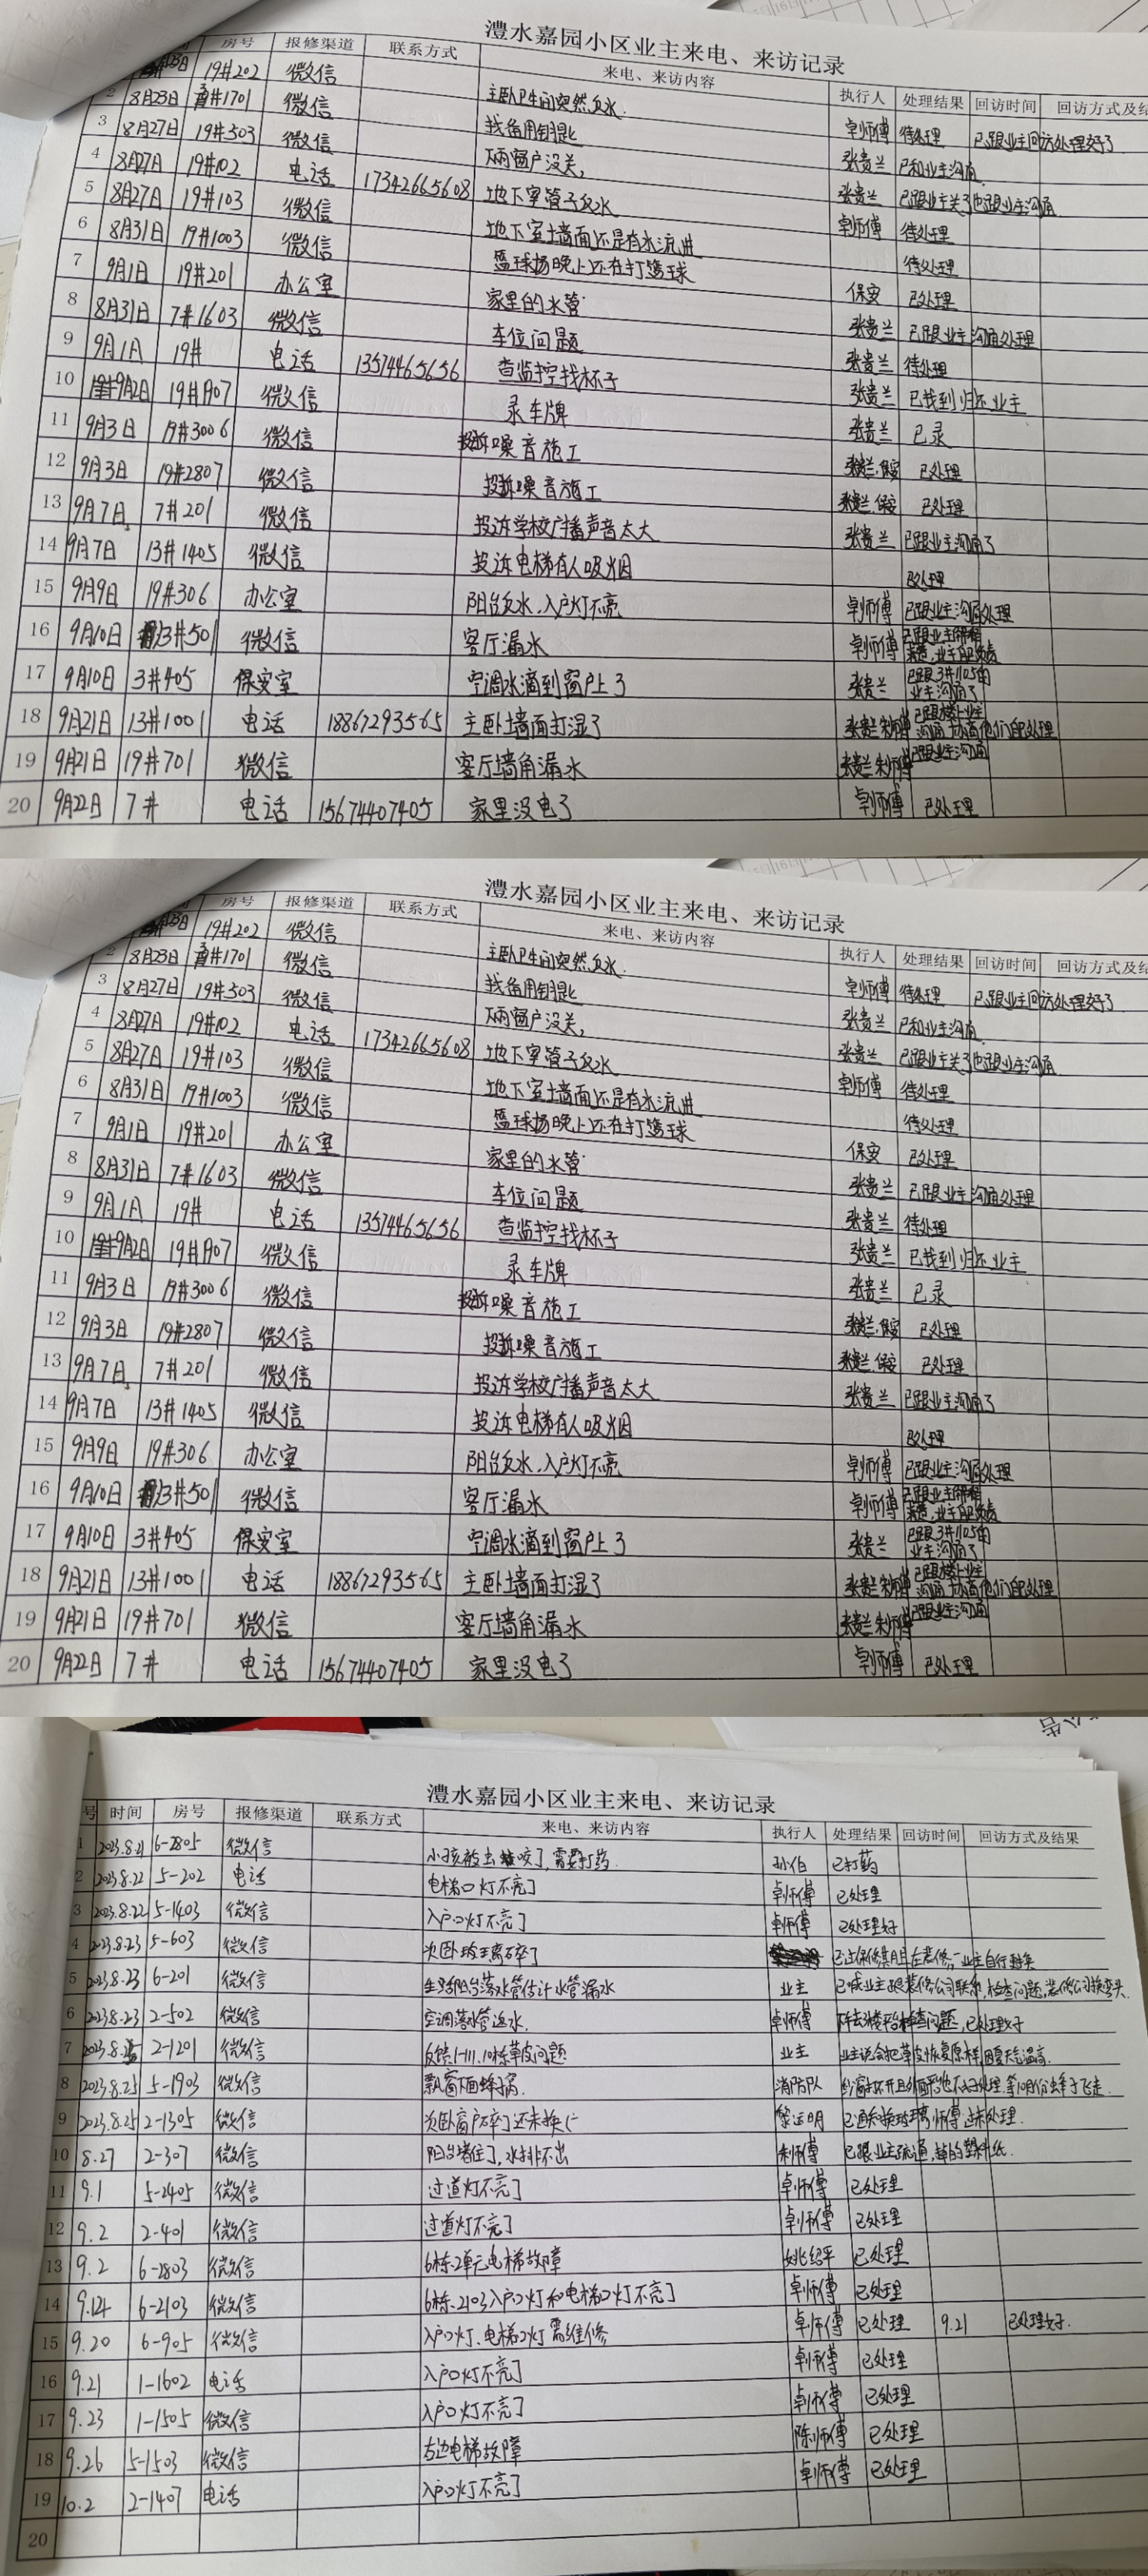 澧水嘉园小区业主来电、来访记录
房号 报修渠道 联系方式 来电、来访内容 执行人 处理结果 回访时间 回访方式及结
19#202 微信 主卧卫生间突然反水. 卓师傅 待处理 已跟业主回访处理好了
2 8月23日 #1701 微信 找备用钥匙 张贵兰 已和业主沟通
3 8月27日 19#503 微信 下雨窗户没关, 张贵兰 已跟业主关了也跟业主沟通
4 8月27日 19#102 电话 17342665608 地下室管子反水 卓师傅 待处理
5 8月27日 19#103 微信 地下室墙面还是有水流进 待处理
6 8月31日 19#1003 微信 篮球场晚上还在打篮球 保安 已处理
7 9月1日 19#201 办公室 家里的水管 张贵兰 已跟业主沟通处理
8 8月31日 7#1603 微信 车位问题 张贵兰 待处理
9 9月1日 19# 电话 13574465656 查监控找杯子 张贵兰 已找到归还业主
10 9月2日 19#1907 微信 录车牌 张贵兰 已录
11 9月3日 19#3006 微信 投诉噪音施工 张贵兰.保安 已处理
12 9月3日 19#2807 微信 投诉噪音施工 张贵兰.保安 已处理
13 9月7日 7#201 微信 投诉学校广播声音太大 张贵兰 已跟业主沟通了
14 9月7日 13#1405 微信 投诉电梯有人吸烟 已处理
15 9月9日 19#306 办公室 阳台反水.入户灯不亮 卓师傅 已跟业主沟通处理
16 9月10日 13#501 微信 客厅漏水 卓师傅 已跟业主 业主自己
17 9月10日 3#405 保安室 空调水滴到窗户上了 张贵兰 已跟3#1105的业主沟通了
18 9月21日 13#1001 电话 18867293565 主卧墙面打湿了 张贵兰朱师傅 已跟楼上业主沟通 他们自己处理
19 9月21日 19#701 微信 客厅墙角漏水 张贵兰朱师傅 已跟业主沟通
20 9月22日 7# 电话 15674407405 家里没电了 卓师傅 已处理
澧水嘉园小区业主来电、来访记录
房号 报修渠道 联系方式 来电、来访内容 执行人 处理结果 回访时间 回访方式及结
19#202 微信 主卧卫生间突然反水. 卓师傅 待处理 已跟业主回访处理好了
2 8月23日 #1701 微信 找备用钥匙 张贵兰 已和业主沟通
3 8月27日 19#503 微信 下雨窗户没关, 张贵兰 已跟业主关了也跟业主沟通
4 8月27日 19#102 电话 17342665608 地下室管子反水 卓师傅 待处理
5 8月27日 19#103 微信 地下室墙面还是有水流进 待处理
6 8月31日 19#1003 微信 篮球场晚上还在打篮球 保安 已处理
7 9月1日 19#201 办公室 家里的水管 张贵兰 已跟业主沟通处理
8 8月31日 7#1603 微信 车位问题 张贵兰 待处理
9 9月1日 19# 电话 13574465656 查监控找杯子 张贵兰 已找到归还业主
10 9月2日 19#1907 微信 录车牌 张贵兰 已录
11 9月3日 19#3006 微信 投诉噪音施工 张贵兰.保安 已处理
12 9月3日 19#2807 微信 投诉噪音施工 张贵兰.保安 已处理
13 9月7日 7#201 微信 投诉学校广播声音太大 张贵兰 已跟业主沟通了
14 9月7日 13#1405 微信 投诉电梯有人吸烟 已处理
15 9月9日 19#306 办公室 阳台反水.入户灯不亮 卓师傅 已跟业主沟通处理
16 9月10日 13#501 微信 客厅漏水 卓师傅 已跟业主 业主自己
17 9月10日 3#405 保安室 空调水滴到窗户上了 张贵兰 已跟3#1105的业主沟通了
18 9月21日 13#1001 电话 18867293565 主卧墙面打湿了 张贵兰朱师傅 已跟楼上业主沟通 他们自己处理
19 9月21日 19#701 微信 客厅墙角漏水 张贵兰朱师傅 已跟业主沟通
20 9月22日 7# 电话 15674407405 家里没电了 卓师傅 已处理
公告
澧水嘉园小区业主来电、来访记录
号 时间 房号 报修渠道 联系方式 来电、来访内容 执行人 处理结果 回访时间 回访方式及结果
1 2023.8.21 6-2805 微信 小孩被虫咬了,需要打药. 孙伯 已打药
2 2023.8.22 5-202 电话 电梯口灯不亮了 卓师傅 已处理
3 2023.8.22 5-1403 微信 入户口灯不亮了 卓师傅 已处理好
4 2023.8.23 5-603 微信 次卧玻璃碎了 已过保修期且在装修,业主自行
5 2023.8.23 6-201 微信 生活阳台落水管估计水管漏水 业主 已喊业主跟装修公司联系,检查问题,装修公司换弯头.
6 2023.8.23 2-502 微信 空调落水管返水. 卓师傅 问题,已处理好
7 2023.8. 2-1201 微信 反馈1-111.10栋草皮问题 业主 业主说会把草皮恢复原样,因夏天气温高.
8 2023.8.25 5-1903 微信 飘窗下面蜂子窝. 消防队 纱窗打不开且外面 不好处理,等10月份蜂子飞走.
9 2023.8.25 2-1305 微信 次卧窗户碎了还未换 黎运明 已通知换玻璃师傅,还未处理.
10 8.27 2-307 微信 阳台堵住了,水排不出 朱师傅 已跟业主疏通,堵的塑料纸.
11 9.1 5-2405 微信 过道灯不亮了 卓师傅 已处理
12 9.2 2-401 微信 过道灯不亮了 卓师傅 已处理
13 9.2 6-2803 微信 6栋.2单元电梯故障 姚绍平 已处理
14 9.14 6-2103 微信 6栋.2103入户口灯和电梯口灯不亮了 卓师傅 已处理
15 9.20 6-905 微信 入户口灯.电梯口灯需维修 卓师傅 已处理 9.21 已处理好.
16 9.21 1-1602 电话 入户口灯不亮了 卓师傅 已处理
17 9.23 1-1505 微信 入户口灯不亮了 卓师傅 已处理
18 9.26 5-1503 微信 右边电梯故障 陈师傅 已处理
19 10.2 2-1407 电话 入户口灯不亮了 卓师傅 已处理
20